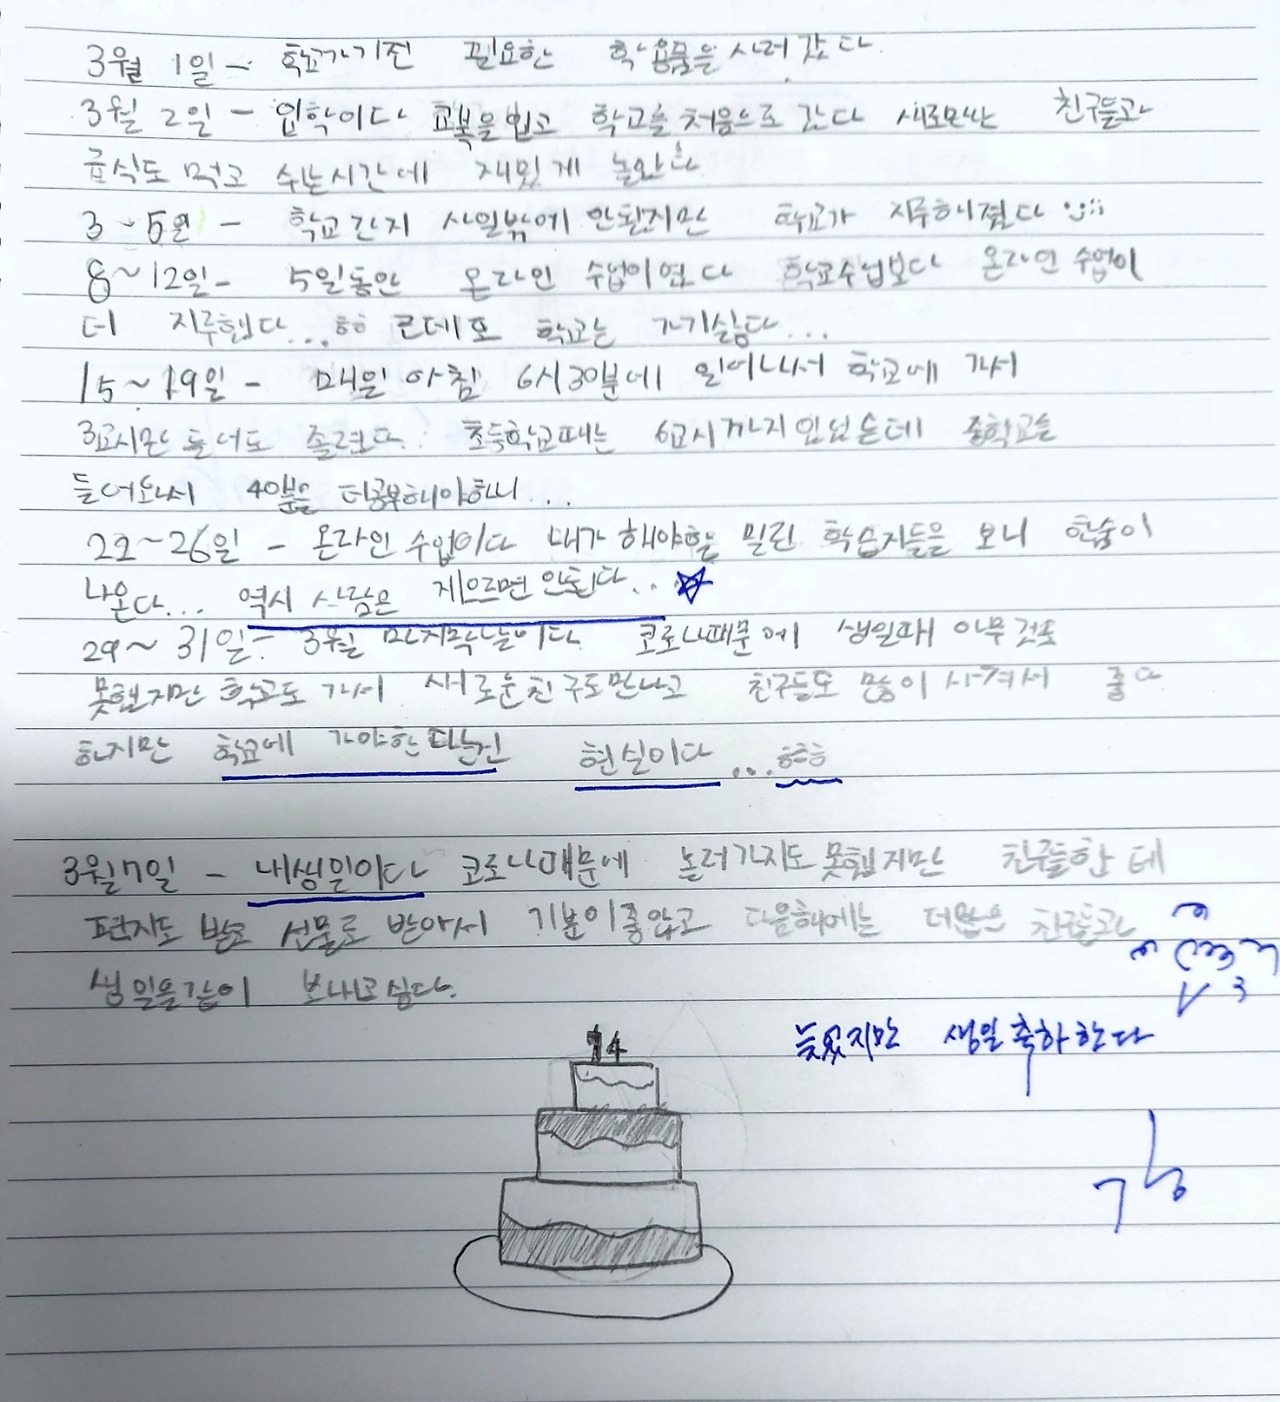 3월 1일 - 학교가기전 필요한 학용품을 사러 갔다.
3월 2일 - 입학이다 교복을 입고 학교를 처음으로 갔다 새로만난 친구들과
급식도 먹고 쉬는시간에 재밌게 놀았다
3~5일 - 학교간지 사일밖에 안됬지만 학교가 지루해졌다
8~12일- 5일동안 온라인 수업이였다 학교수업보다 온라인 수업이
더 지루했다...하하 근데도 학교는 가기싫다...
15~19일 - 매일 아침 6시30분에 일어나서 학교에 가서
3교시만 들어도 졸렸다. 초등학교때는 6교시까지있었는데 중학교를
들어오니 40분을 더공부해야하니...
22~26일 - 온라인 수업이다 내가 해야할 밀린 학습지들을 보니 한숨이
나온다... 역시 사람은 게으르면 안된다... ☆
29~31일- 3월 마지막날이다. 코로나때문에 생일때 아무것도
못했지만 학교도 가서 새로운친구도만나고 친구들도 많이 사겨서 좋다
하지만 학교에 가야한다는건 현실이다...하하
3월7일 - 내생일이다 코로나때문에 놀러가지도못했지만 친구들한테
편지도 받고 선물도 받아서 기분이좋았고 다음해에는 더많은 친구들과
생일을같이 보내고싶다.
14
늦었지만 생일축하한다